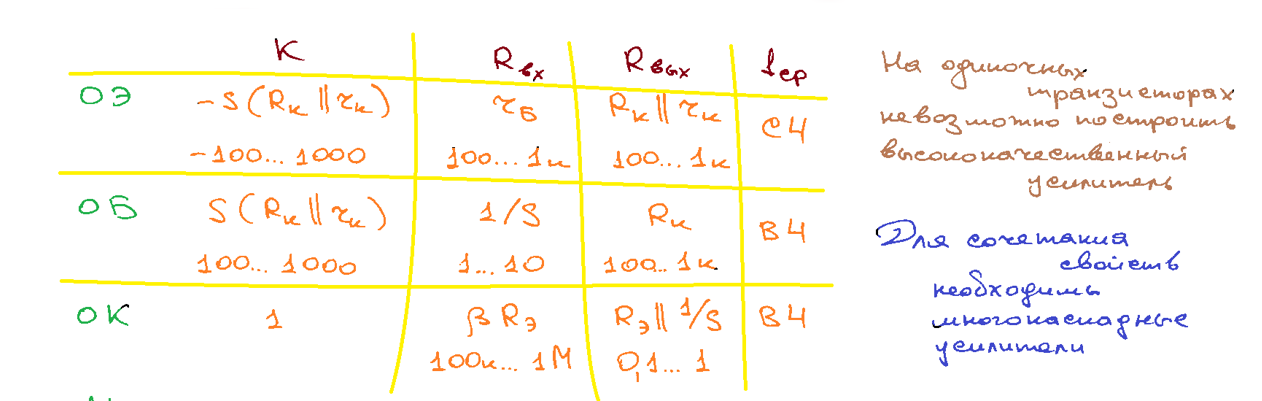 K R вх R вых f ср
ОЭ -S(Rк || rк) rБ Rк || rк СЧ
-100... 1000 100... 1к 100... 1к
ОБ S(Rк || rк) 1/S Rк ВЧ
100... 1000 1... 10 100.. 1к
ОК 1 β Rэ Rэ || 1/S ВЧ
100к... 1М 0,1... 1
На одиночных
транзисторах
невозможно построить
высококачественный
усилитель
Для сочетания
свойств
необходимы
многокаскадные
усилители